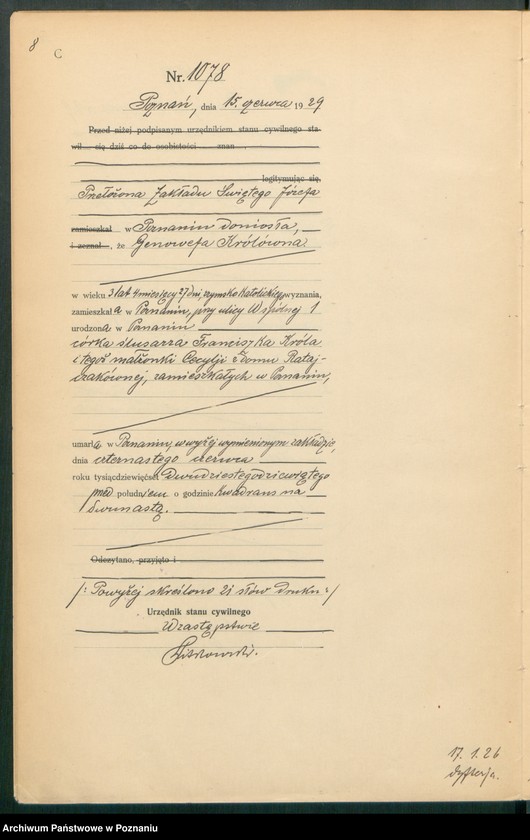 8
C
Nr. 1078
Poznań, dnia 15. czerwca 1929
Przed niżej podpisanym urzędnikiem stanu cywilnego sta-
wił się dziś co do osobistości znan
legitymując się,
Przełożona Zakładu Świętego Józefa
zamieszkał w Poznaniu doniosła,
i zeznał, że Genowefa Królówna.
w wieku 3 lat 4 miesięcy 27 dni, rzymsko katolickiej wyznania,
zamieszkała w Poznaniu, przy ulicy Wspólnej 1
urodzona w Poznaniu
córka ślusarza Franciszka Króla
i tegoż małżonki Cecylji z domu Rataj-
czakównej, zamieszkałych w Poznaniu,
umarła w Poznaniu, w wyżej wymienionym zakładzie,
dnia czternastego czerwca
roku tysiącdziewięćset dwudziestegodziewiątego
przed południem o godzinie kwadrans na
dwunastą.
Odczytano, przyjęto i
/: Powyżej skreślono 21 słów druku :/
Urzędnik stanu cywilnego
W zastępstwie
17. 1. 26
dyfterja.
Archiwum Państwowe w Poznaniu